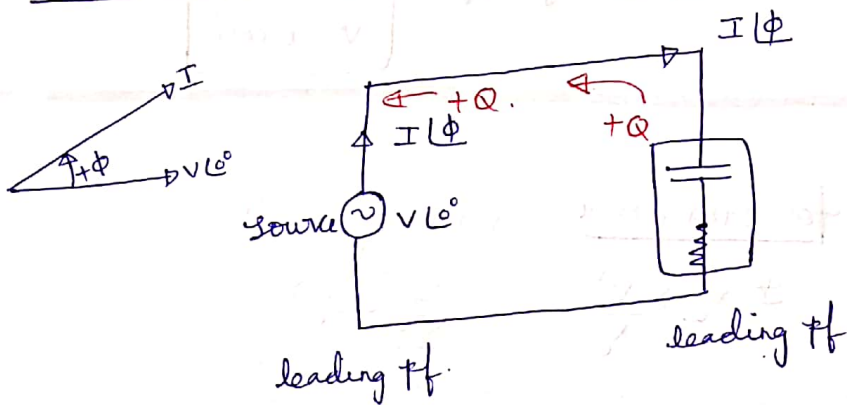 I
+φ
V∠0°
I∠φ
+Q.
+Q
I∠φ
source
V∠0°
leading pf.
leading pf